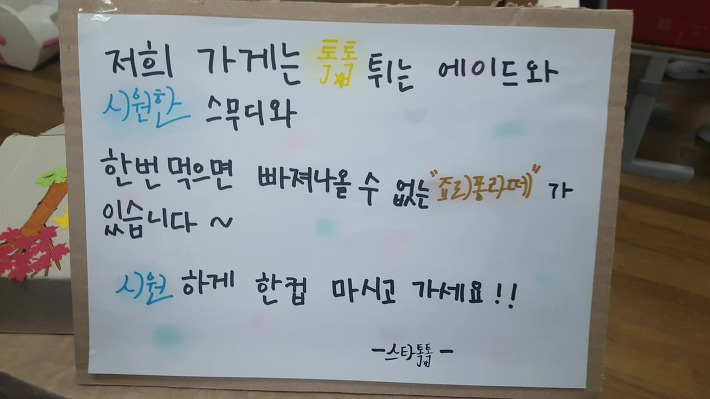 저희 가게는 톡톡 튀는 에이드와
시원한 스무디와
한번 먹으면 빠져나올 수 없는 "죠리퐁라떼"가
있습니다 ~
시원하게 한컵 마시고 가세요!!
-스타톡톡-